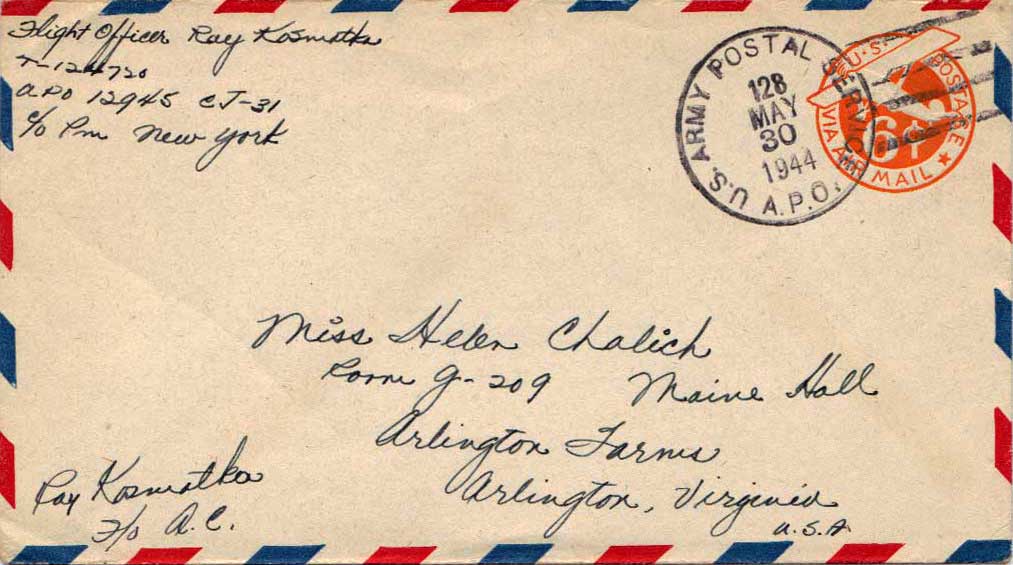 Flight Officer Ray Kosmatka
T-124720
APO 12945 CJ-31
c/o Pm New York
U.S. ARMY POSTAL SERVICE
128
MAY
30
1944
A.P.O.
U.S. POSTAGE
6¢
VIA AIR MAIL
Miss Helen Chalich
Room G-209 Maine Hall
Arlington Farms
Arlington, Virginia
U.S.A
Ray Kosmatka
F/O A.C.